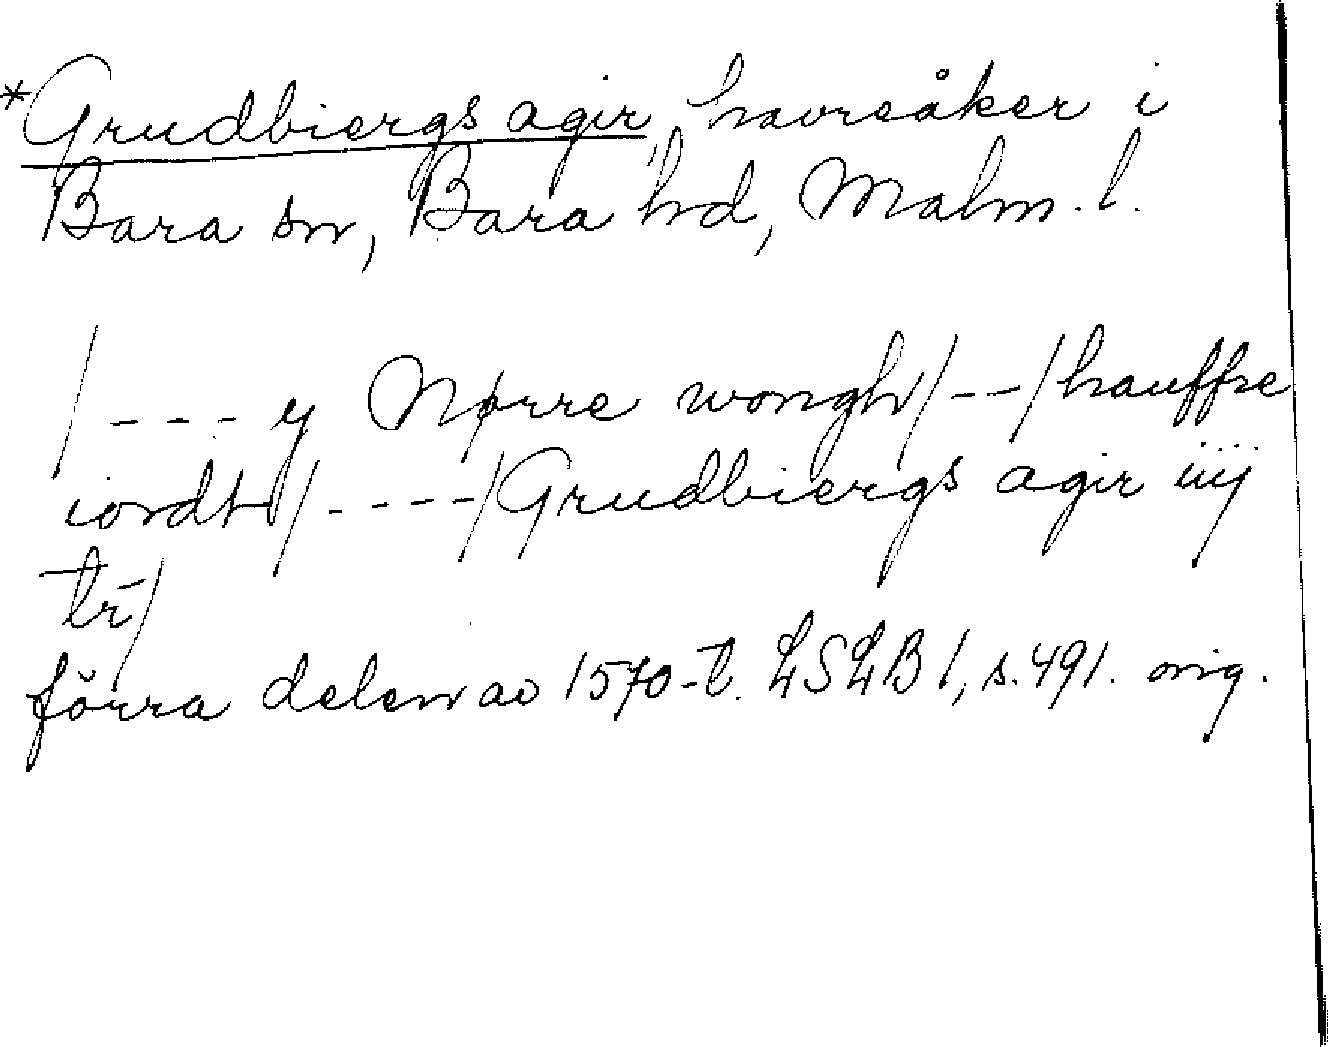 *Grudbiergs agir, havreåker i
Bara sn, Bara hd, Malm. l.
/---y Nørre wongh/--/hauffre
iordt/----/Grudbiergs agir iiij
tr/
förra delen av 1570-t. LSLB 1, s. 491. orig.